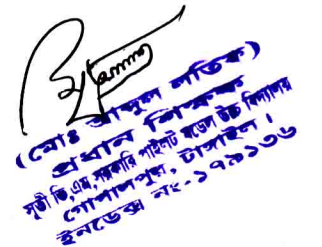 (মোঃ আব্দুল লতিফ)
প্রধান শিক্ষক
সূতী ভি,এম, সরকারি পাইলট মডেল উচ্চ বিদ্যালয়
গোপালপুর, টাঙ্গাইল।
ইনডেক্স নং- ১৭৯১৩৬